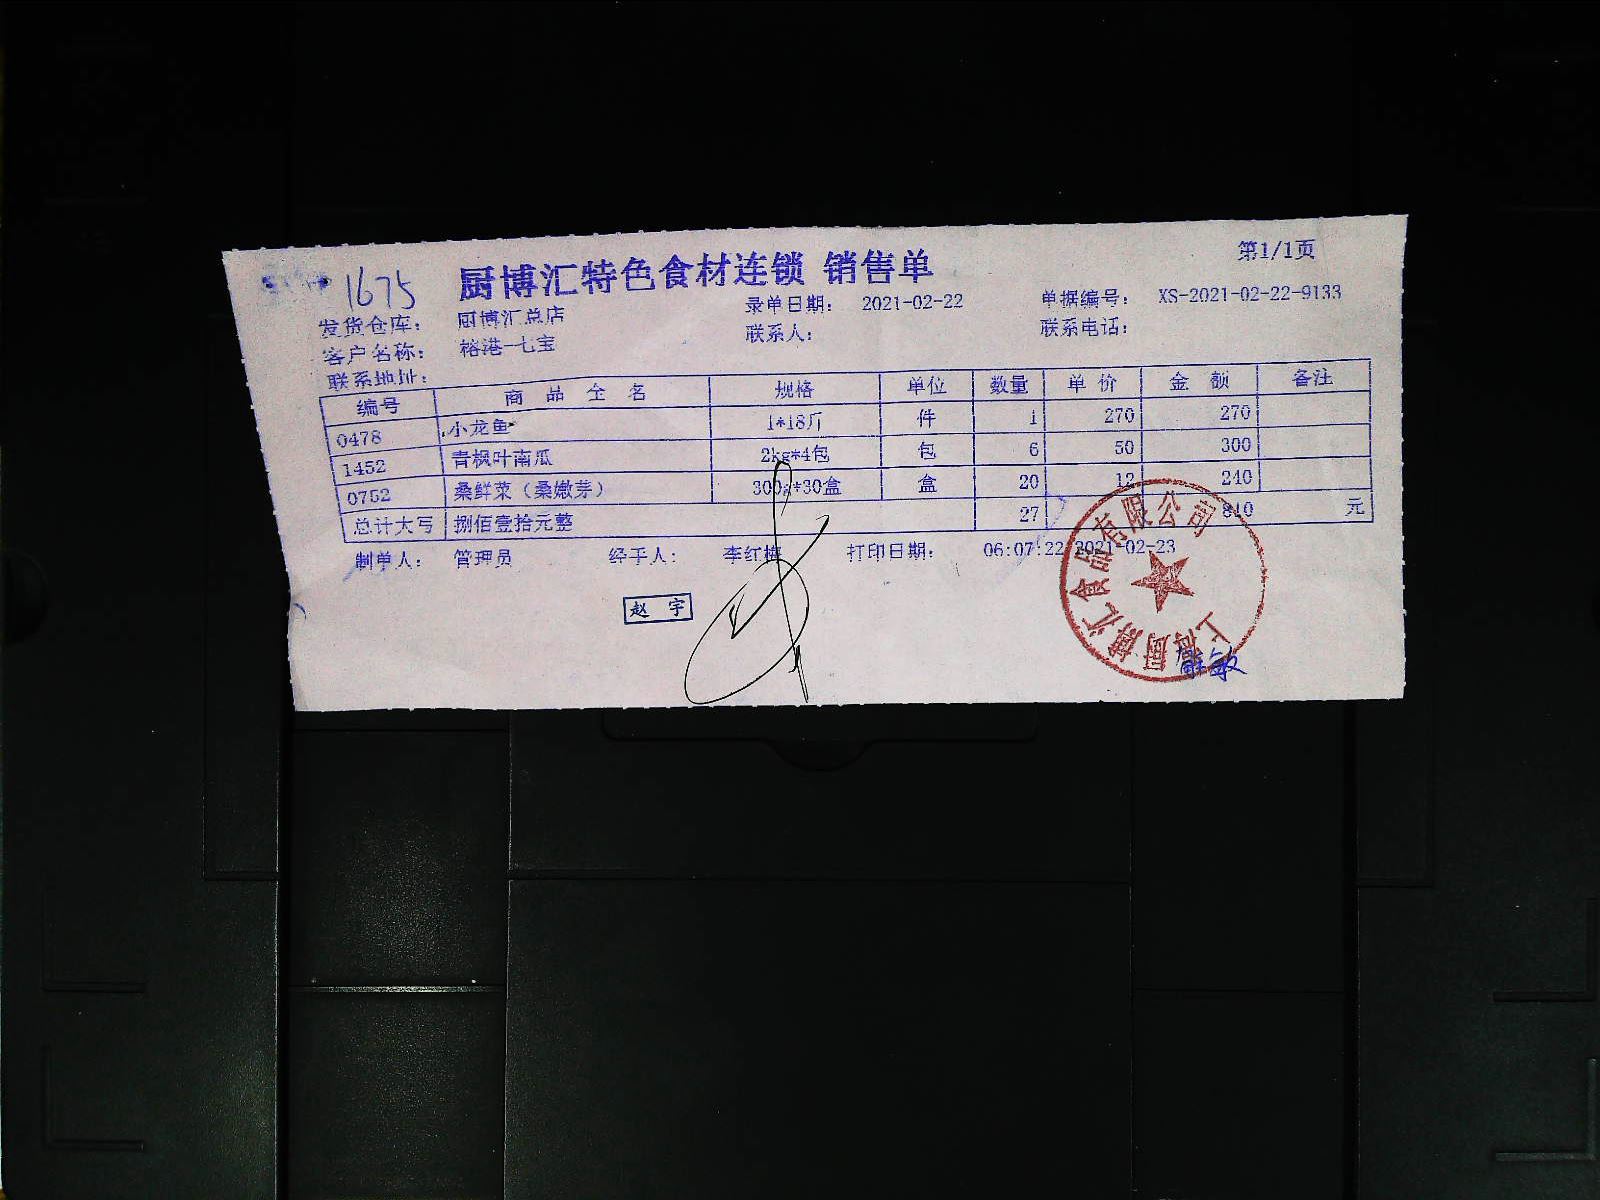 第1/1页
1675
厨博汇特色食材连锁 销售单
发货仓库： 厨博汇总店 录单日期： 2021-02-22 单据编号： XS-2021-02-22-9133
客户名称： 榕港-七宝 联系人： 联系电话：
联系地址：
编号 商 品 全 名 规格 单位 数量 单 价 金 额 备注
0478 小龙鱼 1*18斤 件 1 270 270
1452 青枫叶南瓜 2kg*4包 包 6 50 300
0752 桑鲜菜（桑嫩芽） 300g*30盒 盒 20 12 240
总计大写 捌佰壹拾元整 27 810 元
制单人： 管理员 经手人： 李红梅 打印日期： 06:07:22 2021-02-23
赵 宇
上海厨博汇食品有限公司